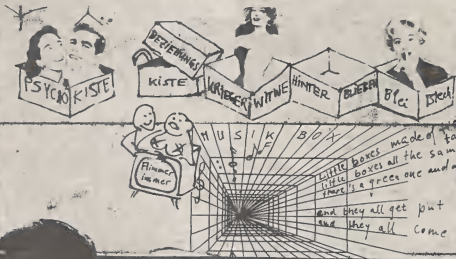 PSYCHO KISTE
BEZIEHUNGS
KISTE
KRIEGER WITWE
HINTER BLIEBEN
Blei
MUSIK BOX
Flimmer
immer
Little boxes made of
little boxes all the sam
there's a green one and a
and they all get put
and they all come